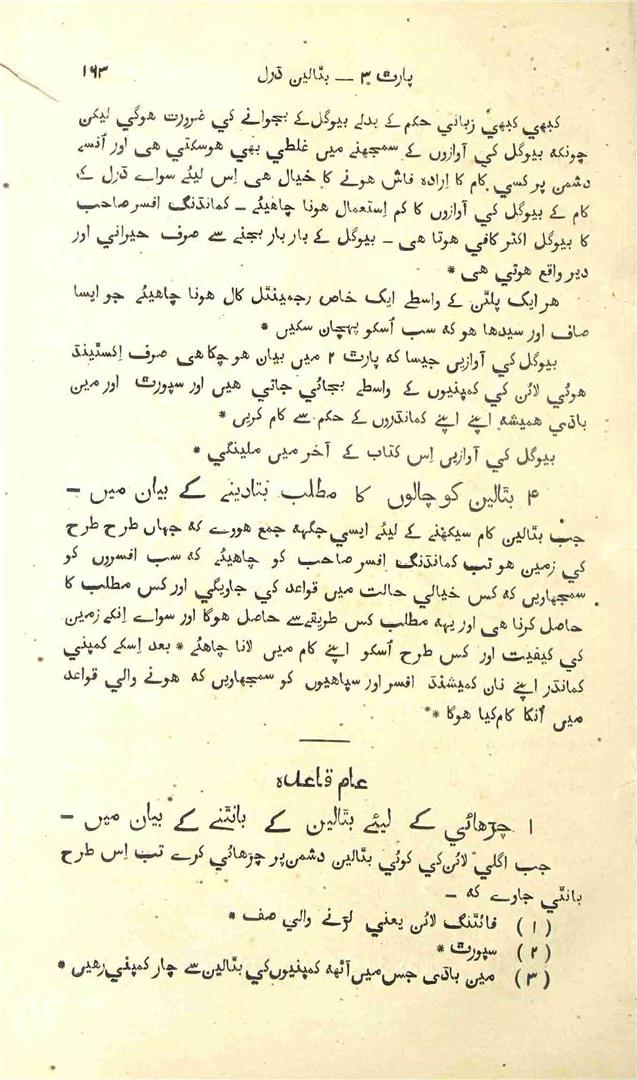 پارٹ ۳ — بٹالین ڈرل ۱۶۳
کبھی کبھی زبانی حکم کے بدلے بیوگل کے بجوانے کی ضرورت ہوگی لیکن
چونکہ بیوگل کی آوازوں کے سمجھنے میں غلطی بھی ہوسکتی ہی اور اُنسے
دشمن پر کسی کام کا اِرادہ فاش ہونے کا خیال ہی اِس لیئے سواے ڈرل کے
کام کے بیوگل کی آوازوں کا کم اِستعمال ہونا چاھیئے — کمانڈنگ افسر صاحب
کا بیوگل اکثر کافی ہوتا ہی — بیوگل کے بار بار بجنے سے صرف حیرانی اور
دیر واقع ہوتی ہی *
ھر ایک پلٹن کے واسطے ایک خاص رجمینٹل کال ہونا چاھیئے جو ایسا
صاف اور سیدھا ہو کہ سب اُسکو پہچان سکیں *
بیوگل کی آوازیں جیسا کہ پارٹ ۲ میں بیان ہو چکا ہی صرف اِکسٹینڈ
ھوئی لائن کی کمپنیوں کے واسطے بجائی جاتی ہیں اور سپورٹ اور مین
باڈی ہمیشہ اپنے اپنے کمانڈروں کے حکم سے کام کریں *
بیوگل کی آوازیں اِس کتاب کے آخر میں ملینگی *
۴ بٹالین کو چالوں کا مطلب بتادینے کے بیان میں —
جب بٹالین کام سیکھنے کے لیئے ایسی جگہہ جمع ھووے کہ جہاں طرح طرح
کی زمین ھو تب کمانڈنگ اِفسر صاحب کو چاھیئے کہ سب افسروں کو
سمجھاویں کہ کس خیالی حالت میں قواعد کی جاویگی اور کس مطلب کا
حاصل کرنا ہی اور یہہ مطلب کس طریقے سے حاصل ہوگا اور سواے اِنکے زمین
کی کیفیت اور کس طرح اُسکو اپنے کام میں لانا چاھئے * بعد اِسکے کمپنی
کمانڈر اپنے نان کمیشنڈ افسر اور سپاھیوں کو سمجھاویں کہ ھونے والی قواعد
میں اُنکا کام کیا ھوگا **
عام قاعدہ
۱ چڑھائی کے لیئے بٹالین کے بانٹنے کے بیان میں —
جب اگلی لائن کی کوئی بٹالین دشمن پر چڑھائی کرے تب اِس طرح
بانٹی جاوے کہ —
(۱) فائٹنگ لائن یعنی لڑنے والی صف *
(۲) سپورٹ *
(۳) مین باڈی جس میں آٹھہ کمپنیوں کی بٹالین سے چار کمپنی رھیں *